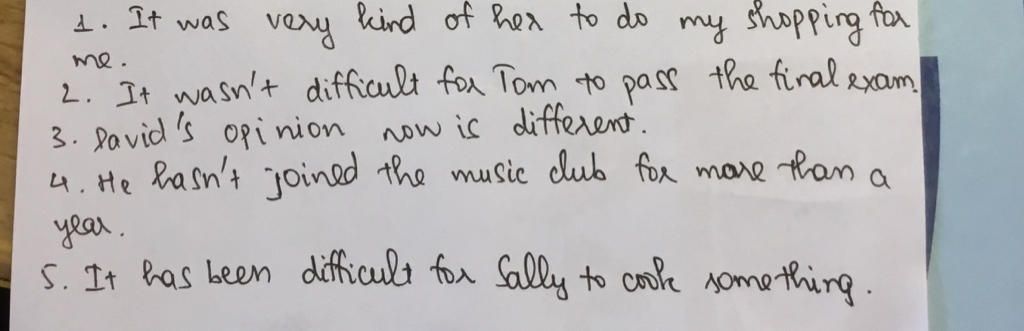 1. It was very kind of her to do my shopping for
me.
2. It wasn't difficult for Tom to pass the final exam.
3. David's opinion now is different.
4. He hasn't joined the music club for more than a
year.
5. It has been difficult for Sally to cook something.